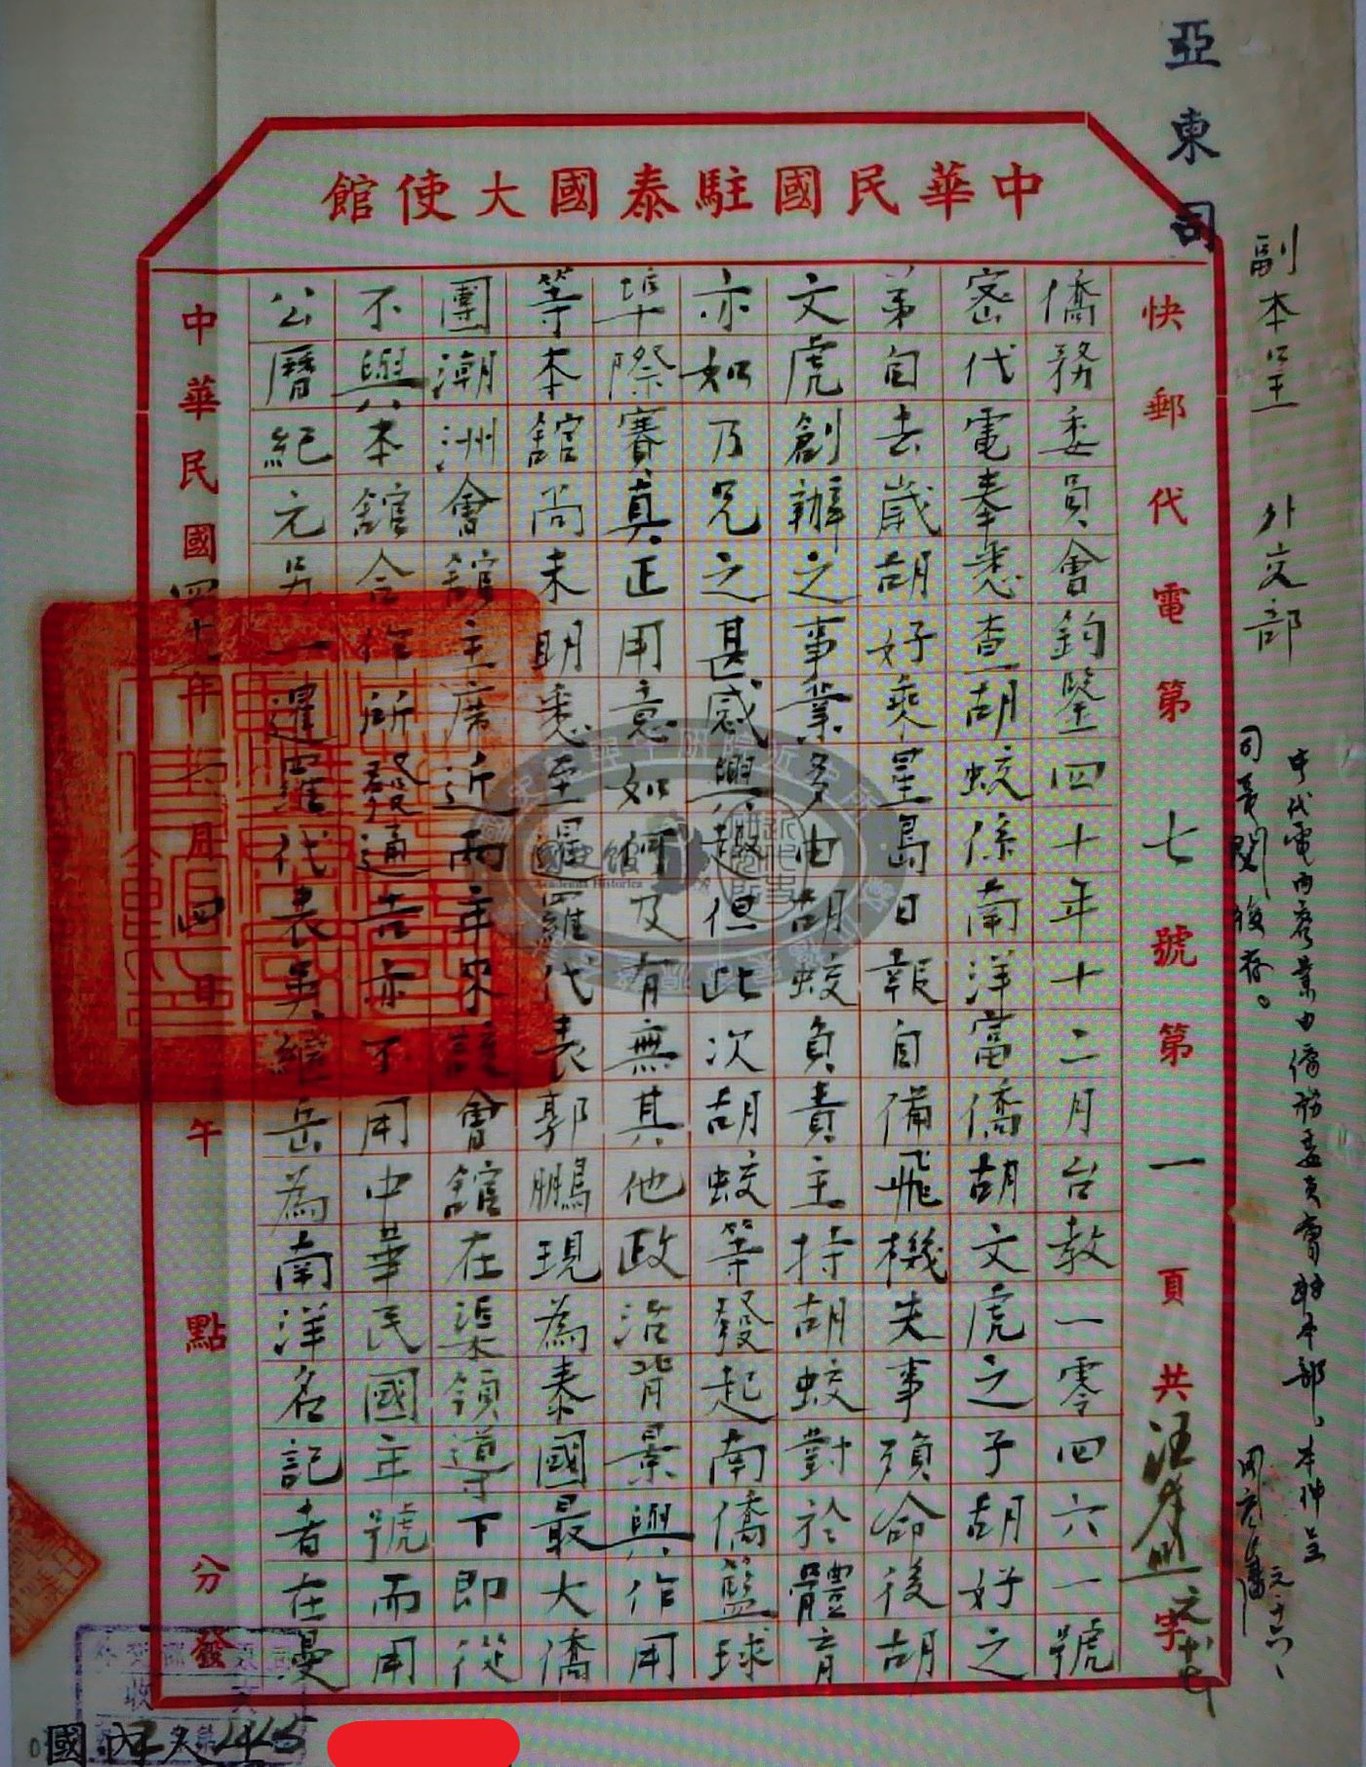 亞東司
副本呈 外交部
本代電內容業由僑務委員會
司長閱後存。
中華民國駐泰國大使館
快郵代電第七號第一頁共字
僑務委員會鈞鑒四十年十二月台教一零四六一號
密代電奉悉查胡蛟係南洋富僑胡文虎之子胡好之
弟自去歲胡好乘星島日報自備飛機失事殞命後胡
文虎創辦之事業多由胡蛟負責主持胡蛟對於體育
亦如乃兄之甚感興趣但此次胡蛟等發起南僑籃球
埠際賽真正用意如何及有無其他政治背景與作用
等本館尚未明悉至暹羅代表郭鵬現為泰國最大僑
團潮洲會館主席近兩年來該會館在渠領導下即從
不與本館合作所發通告亦不用中華民國年號而用
公曆紀元另一暹羅代表吳繼岳為南洋名記者在曼
中華民國四十一年一月四日午點分發
國